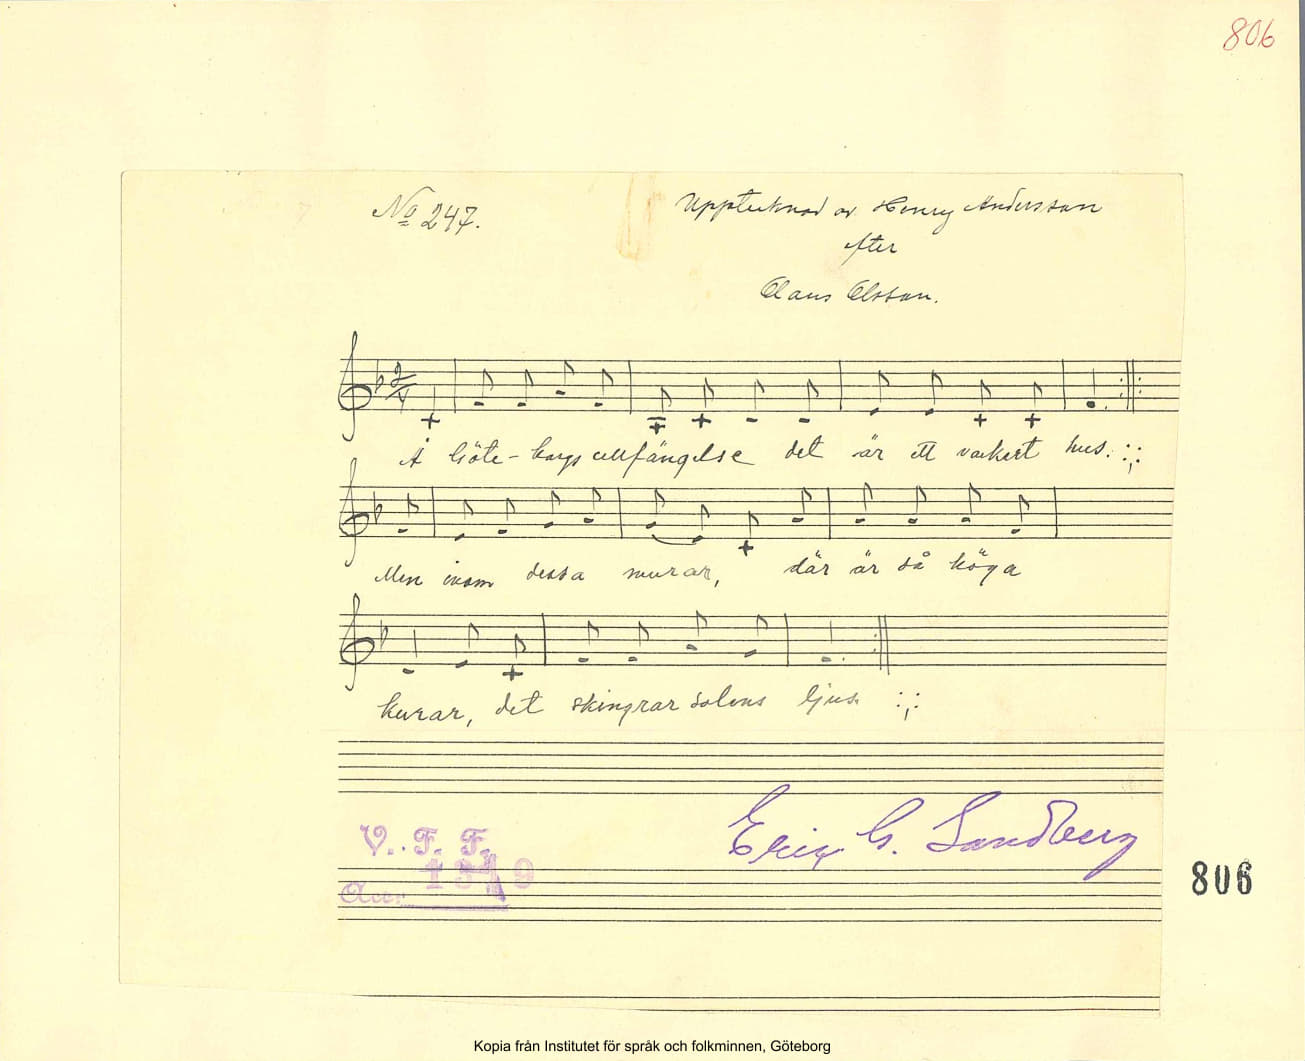 806
No 247.
Upptecknad av Henry Andersson
efter
Claus Olsson.
2/4
Å Göte-borgs cellfängelse det är ett vackert hus. :;:
Men inom dessa murar, där är så höga
kurar, det skingrar solens ljus :;:
Erix G. Sandberg
V. F. F.
Acc.
806
Kopia från Institutet för språk och folkminnen, Göteborg